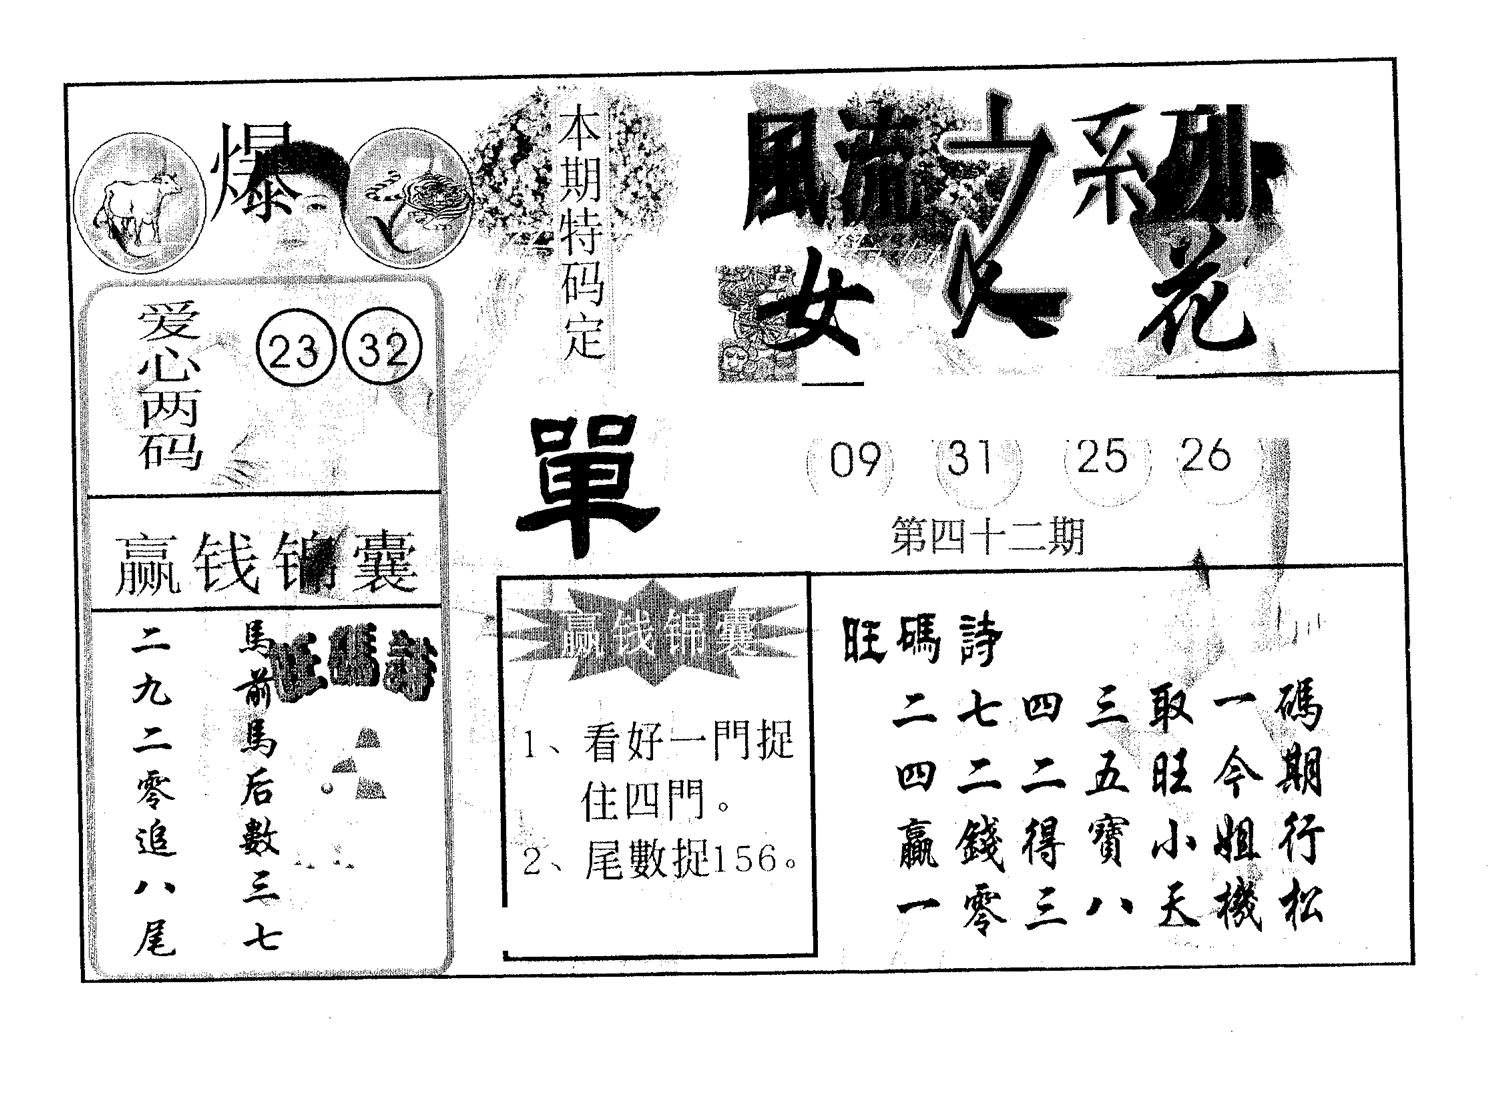 爆
本期特码定
單
風流之系列
女人花
爱心两码
23 32
赢钱锦囊
旺碼詩
馬前馬后數三七
二九二零追八尾
09 31 25 26
第四十二期
赢钱锦囊
1、看好一門捉
住四門。
2、尾數捉156。
旺碼詩
二七四三取一碼
四二二五旺今期
贏錢得寶小姐行
一零三八天機松